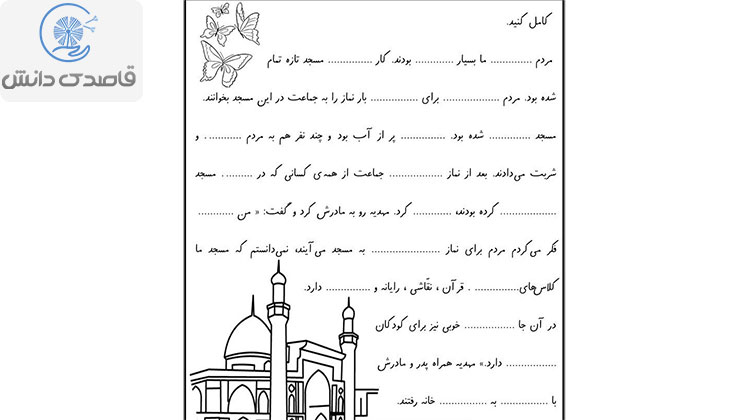 قاصدک دانش
کامل کنید.
مردم ............ ما بسیار ............ بودند. کار ............... مسجد تازه تمام
شده بود. مردم ................... برای ................ بار نماز را به جماعت در این مسجد بخوانند.
مسجد .............. شده بود. ............... پر از آب بود و چند نفر هم به مردم ............ . و
شربت می‌دادند. بعد از نماز .................. جماعت از همه‌ی کسانی که در .......... . مسجد
................... کرده بودند، ............. کرد. مهدیه رو به مادرش کرد و گفت: « من ............
فکر می‌کردم مردم برای نماز ....................... به مسجد می‌آیند، نمی‌دانستم که مسجد ما
کلاس‌های............... . قرآن ، نقّاشی ، رایانه و ............... دارد.
در آن جا ................. خوبی نیز برای کودکان
................. دارد.» مهدیه همراه پدر و مادرش
با ................ به ................ خانه رفتند.